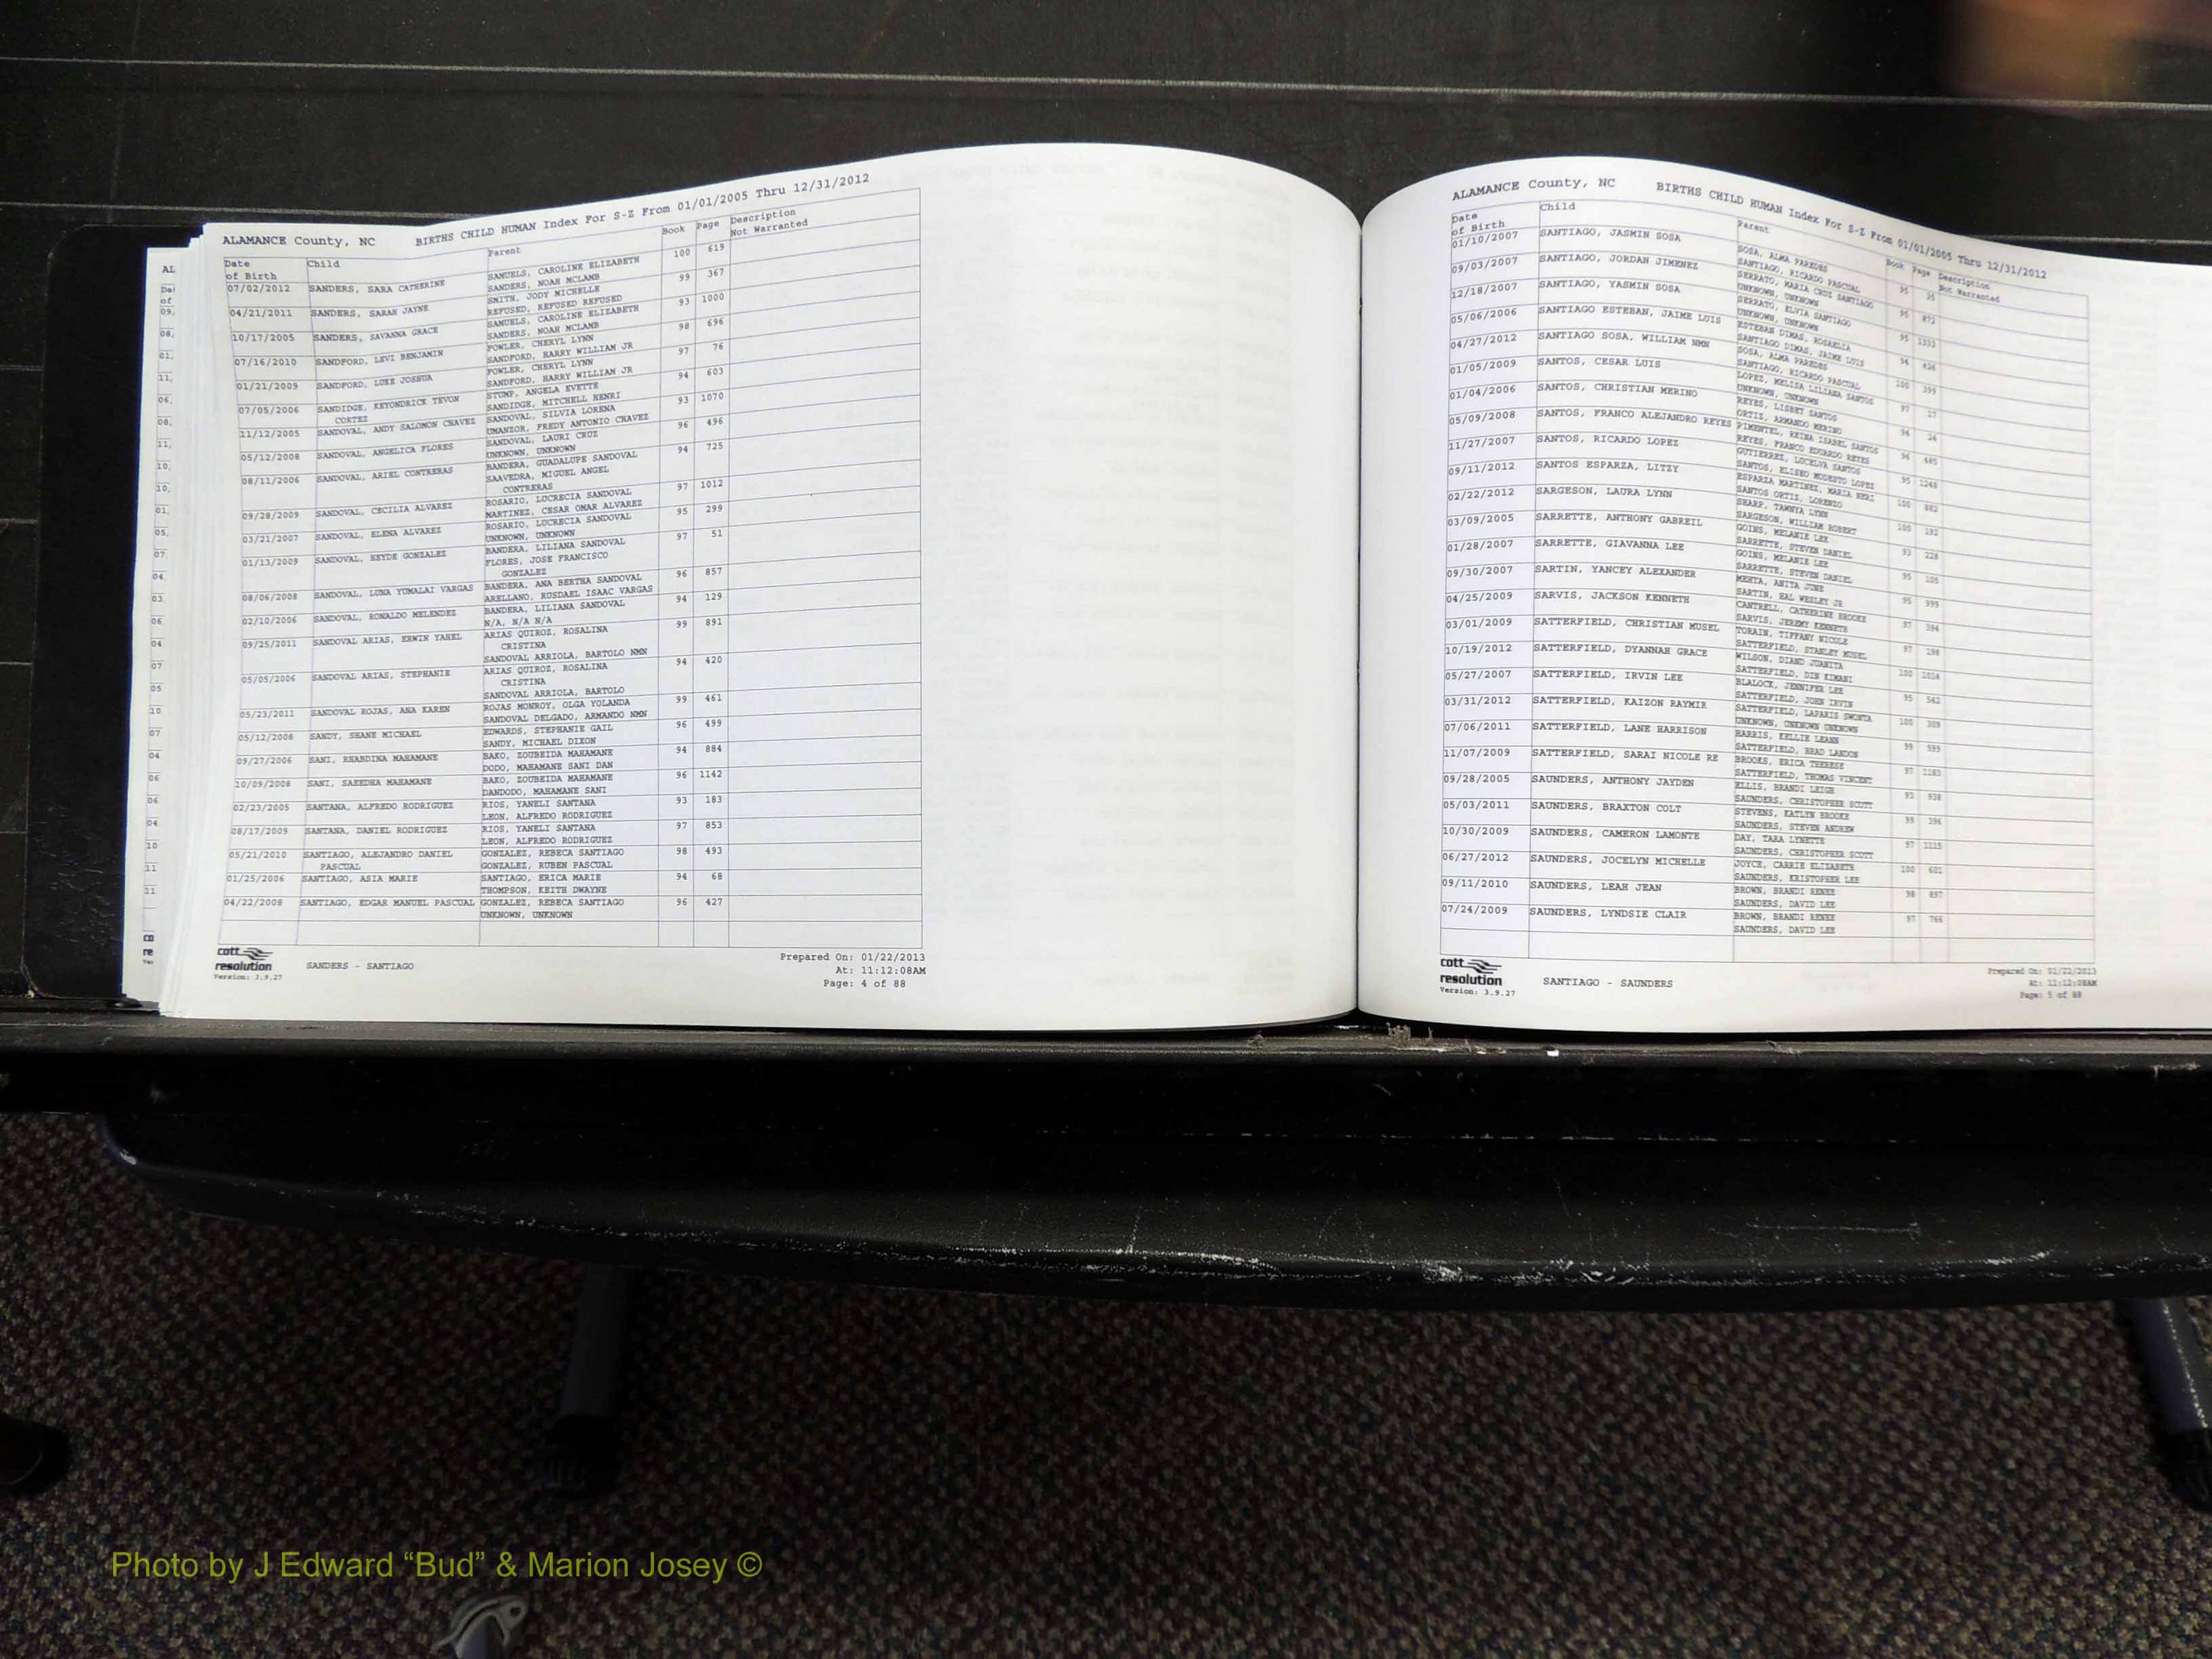 ALAMANCE County, NC BIRTHS CHILD HUMAN Index For S-Z From 01/01/2005 Thru 12/31/2012
Date of Birth Child Parent Book Page Description Not Warranted
07/02/2012 SANDERS, SARA CATHERINE SAMUELS, CAROLINE ELIZABETH 100 619
SANDERS, NOAH MCLAMB
04/21/2011 SANDERS, SARAH JAYNE SMITH, JODY MICHELLE 99 367
REFUSED, REFUSED REFUSED
10/17/2005 SANDERS, SAVANNA GRACE SAMUELS, CAROLINE ELIZABETH 93 1000
SANDERS, NOAH MCLAMB
07/16/2010 SANDFORD, LEVI BENJAMIN FOWLER, CHERYL LYNN 98 696
SANDFORD, HARRY WILLIAM JR
01/21/2009 SANDFORD, LUKE JOSHUA FOWLER, CHERYL LYNN 97 76
SANDFORD, HARRY WILLIAM JR
07/05/2006 SANDIDGE, KEYONDRICK TEVON STUMP, ANGELA EVETTE 94 603
CORTEZ SANDIDGE, MITCHELL HENRI
11/12/2005 SANDOVAL, ANDY SALOMON CHAVEZ SANDOVAL, SILVIA LORENA 93 1070
UMANZOR, FREDY ANTONIO CHAVEZ
05/12/2008 SANDOVAL, ANGELICA FLORES SANDOVAL, LAURI CRUZ 96 496
UNKNOWN, UNKNOWN
08/11/2006 SANDOVAL, ARIEL CONTRERAS BANDERA, GUADALUPE SANDOVAL 94 725
SAAVEDRA, MIGUEL ANGEL
CONTRERAS
09/28/2009 SANDOVAL, CECILIA ALVAREZ ROSARIO, LUCRECIA SANDOVAL 97 1012
MARTINEZ, CESAR OMAR ALVAREZ
03/21/2007 SANDOVAL, ELENA ALVAREZ ROSARIO, LUCRECIA SANDOVAL 95 299
UNKNOWN, UNKNOWN
01/13/2009 SANDOVAL, HEYDE GONZALEZ BANDERA, LILIANA SANDOVAL 97 51
FLORES, JOSE FRANCISCO
GONZALEZ
08/06/2008 SANDOVAL, LUNA YUMALAI VARGAS BANDERA, ANA BERTHA SANDOVAL 96 857
ARELLANO, RUSDAEL ISAAC VARGAS
02/10/2006 SANDOVAL, RONALDO MELENDEZ BANDERA, LILIANA SANDOVAL 94 129
N/A, N/A N/A
09/25/2011 SANDOVAL ARIAS, ERWIN YAHEL ARIAS QUIROZ, ROSALINA 99 891
CRISTINA
SANDOVAL ARRIOLA, BARTOLO NMN
05/05/2006 SANDOVAL ARIAS, STEPHANIE ARIAS QUIROZ, ROSALINA 94 420
CRISTINA
SANDOVAL ARRIOLA, BARTOLO
05/23/2011 SANDOVAL ROJAS, ANA KAREN ROJAS MONROY, OLGA YOLANDA 99 461
SANDOVAL DELGADO, ARMANDO NMN
05/12/2008 SANDY, SHANE MICHAEL EDWARDS, STEPHANIE GAIL 96 499
SANDY, MICHAEL DIXON
09/27/2006 SANI, RHABDINA MAHAMANE BAKO, ZOUBEIDA MAHAMANE 94 884
DODO, MAHAMANE SANI DAN
10/09/2008 SANI, SAEEDHA MAHAMANE BAKO, ZOUBEIDA MAHAMANE 96 1142
DANDODO, MAHAMANE SANI
02/23/2005 SANTANA, ALFREDO RODRIGUEZ RIOS, YANELI SANTANA 93 183
LEON, ALFREDO RODRIGUEZ
08/17/2009 SANTANA, DANIEL RODRIGUEZ RIOS, YANELI SANTANA 97 853
LEON, ALFREDO RODRIGUEZ
05/21/2010 SANTIAGO, ALEJANDRO DANIEL GONZALEZ, REBECA SANTIAGO 98 493
PASCUAL GONZALEZ, RUBEN PASCUAL
01/25/2006 SANTIAGO, ASIA MARIE SANTIAGO, ERICA MARIE 94 68
THOMPSON, KEITH DWAYNE
04/22/2008 SANTIAGO, EDGAR MANUEL PASCUAL GONZALEZ, REBECA SANTIAGO 96 427
UNKNOWN, UNKNOWN
cott
resolution
Version: 3.9.27
SANDERS - SANTIAGO
Prepared On: 01/22/2013
At: 11:12:08AM
Page: 4 of 88
ALAMANCE County, NC BIRTHS CHILD HUMAN Index For S-Z From 01/01/2005 Thru 12/31/2012
Date of Birth Child Parent Book Page Description Not Warranted
01/10/2007 SANTIAGO, JASMIN SOSA SOSA, ALMA PAREDES 95 35
SANTIAGO, RICARDO PASCUAL
09/03/2007 SANTIAGO, JORDAN JIMENEZ SERRATO, MARIA CRUZ SANTIAGO 95
UNKNOWN, UNKNOWN
12/18/2007 SANTIAGO, YASMIN SOSA SERRATO, ELVIA SANTIAGO 95 1333
UNKNOWN, UNKNOWN
05/06/2006 SANTIAGO ESTEBAN, JAIME LUIS ESTEBAN DIMAS, ROSAELIA 94
SANTIAGO DIMAS, JAIME LUIS
04/27/2012 SANTIAGO SOSA, WILLIAM NMN SOSA, ALMA PAREDES 100 399
SANTIAGO, RICARDO PASCUAL
01/05/2009 SANTOS, CESAR LUIS LOPEZ, MELISA LILIANA SANTOS 97 17
UNKNOWN, UNKNOWN
01/04/2006 SANTOS, CHRISTIAN MERINO REYES, LISBET SANTOS 94
ORTIZ, ARMANDO MERINO
05/09/2008 SANTOS, FRANCO ALEJANDRO REYES PIMENTEL, REINA ISABEL SANTOS 96 485
REYES, FRANCO EDUARDO REYES
11/27/2007 SANTOS, RICARDO LOPEZ GUTIERREZ, LUCELVA SANTOS 95 1248
SANTOS, ELISEO MODESTO LOPEZ
09/11/2012 SANTOS ESPARZA, LITZY ESPARZA MARTINEZ, MARIA NERI 100 882
SANTOS ORTIZ, LORENZO
02/22/2012 SARGESON, LAURA LYNN SHARP, TAWNYA LYNN 100 192
SARGESON, WILLIAM ROBERT
03/09/2005 SARRETTE, ANTHONY GABREIL GOINS, MELANIE LEE 93 228
SARRETTE, STEVEN DANIEL
01/28/2007 SARRETTE, GIAVANNA LEE GOINS, MELANIE LEE 95 105
SARRETTE, STEVEN DANIEL
09/30/2007 SARTIN, YANCEY ALEXANDER MEHTA, ANITA JUNE 95 999
SARTIN, HAL WESLEY JR
04/25/2009 SARVIS, JACKSON KENNETH CANTRELL, CATHERINE BROOKE 97 394
SARVIS, JEREMY KENNETH
03/01/2009 SATTERFIELD, CHRISTIAN MUSEL TORAIN, TIFFANY NICOLE 97 198
SATTERFIELD, STANLEY MUSEL
10/19/2012 SATTERFIELD, DYANNAH GRACE WILSON, DIAND JUANITA 100 1014
SATTERFIELD, DIN KIMANI
05/27/2007 SATTERFIELD, IRVIN LEE BLALOCK, JENNIFER LEE 95 542
SATTERFIELD, JOHN IRVIN
03/31/2012 SATTERFIELD, KAIZON RAYMIR SATTERFIELD, LAPARIS SWONTA 100 309
UNKNOWN, UNKNOWN UNKNOWN
07/06/2011 SATTERFIELD, LANE HARRISON HARRIS, KELLIE LEANN 99 599
SATTERFIELD, BRAD LANDON
11/07/2009 SATTERFIELD, SARAI NICOLE RE BROOKS, ERICA THERESE 97 1183
SATTERFIELD, THOMAS VINCENT
09/28/2005 SAUNDERS, ANTHONY JAYDEN ELLIS, BRANDI LEIGH 93 938
SAUNDERS, CHRISTOPHER SCOTT
05/03/2011 SAUNDERS, BRAXTON COLT STEVENS, KATLYN BROOKE 99 396
SAUNDERS, STEVEN ANDREW
10/30/2009 SAUNDERS, CAMERON LAMONTE DAY, TARA LYNETTE 97 1115
SAUNDERS, CHRISTOPHER SCOTT
06/27/2012 SAUNDERS, JOCELYN MICHELLE JOYCE, CARRIE ELIZABETH 100 601
SAUNDERS, KRISTOPHER LEE
09/11/2010 SAUNDERS, LEAH JEAN BROWN, BRANDI RENEE 98 897
SAUNDERS, DAVID LEE
07/24/2009 SAUNDERS, LYNDSIE CLAIR BROWN, BRANDI RENEE 97 766
SAUNDERS, DAVID LEE
cott
resolution
Version: 3.9.27
SANTIAGO - SAUNDERS
Prepared On: 01/22/2013
At: 11:12:08AM
Page: 5 of 88
Photo by J Edward “Bud” & Marion Josey ©